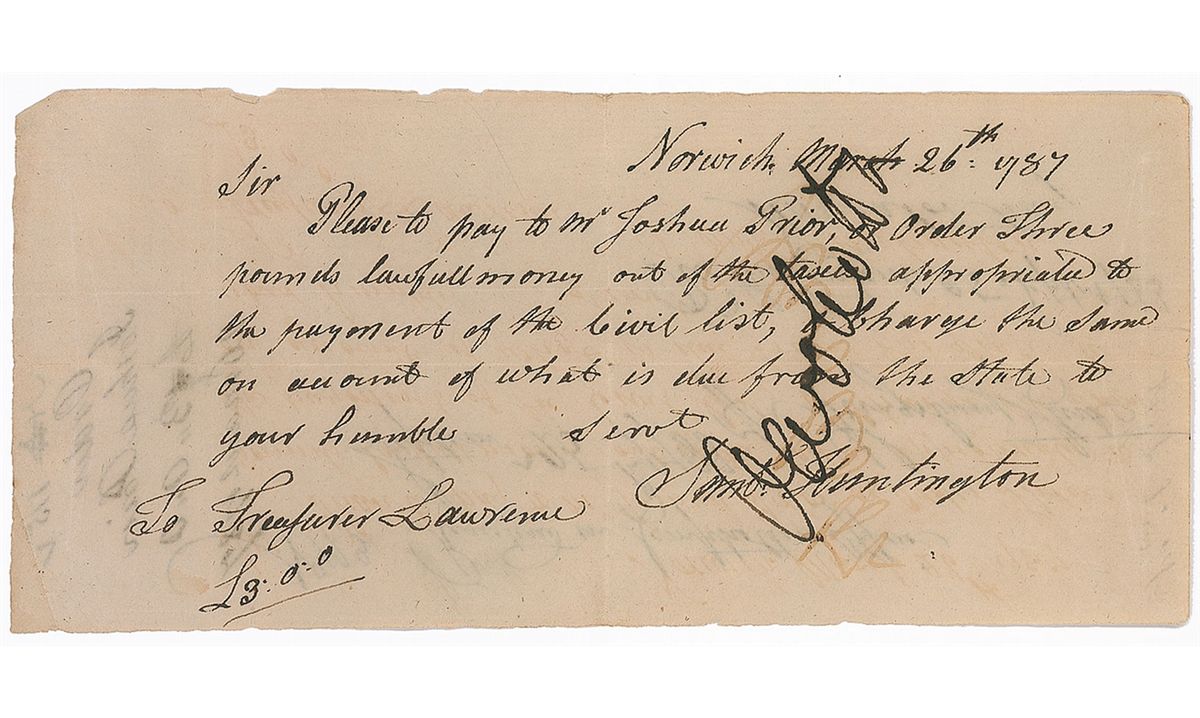 Norwich, March 26.th 1787
Sir
Please to pay to Mr Joshua Prior, or Order Three
pounds lawfull money out of the taxes appropriated to
the payment of the Civil list, & Charge the same
on account of what is due from the State to
your humble Servt
Saml. Huntington
To Treasurer Lawrence
£3.0.0